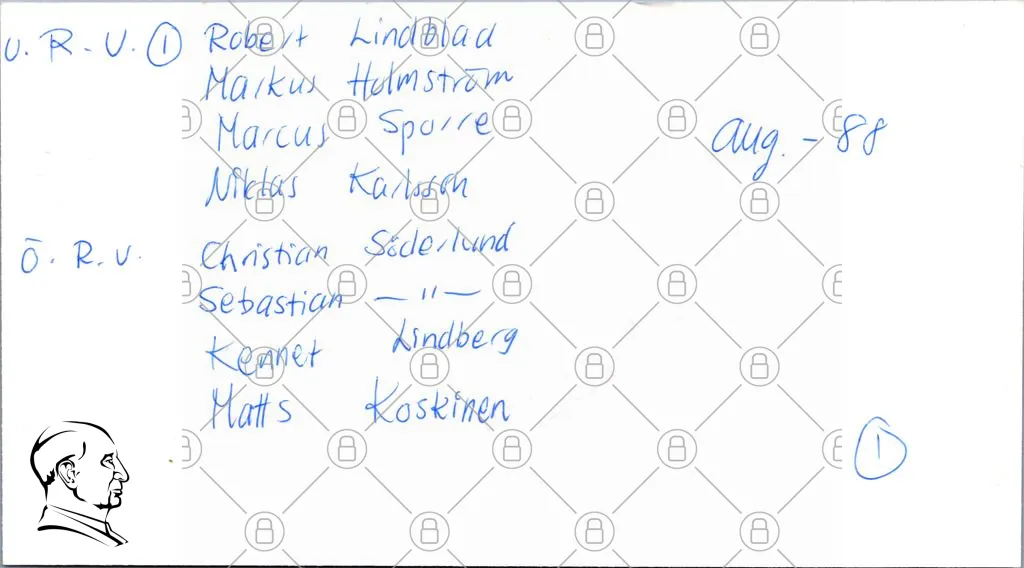 U. R. V. ① Robert Lindblad
Markus Holmström
Marcus Sparre
aug. - 88
Niklas Karlsson
Ö. R. V. Christian Söderlund
Sebastian — " —
Kennet Lindberg
Matts Koskinen
①